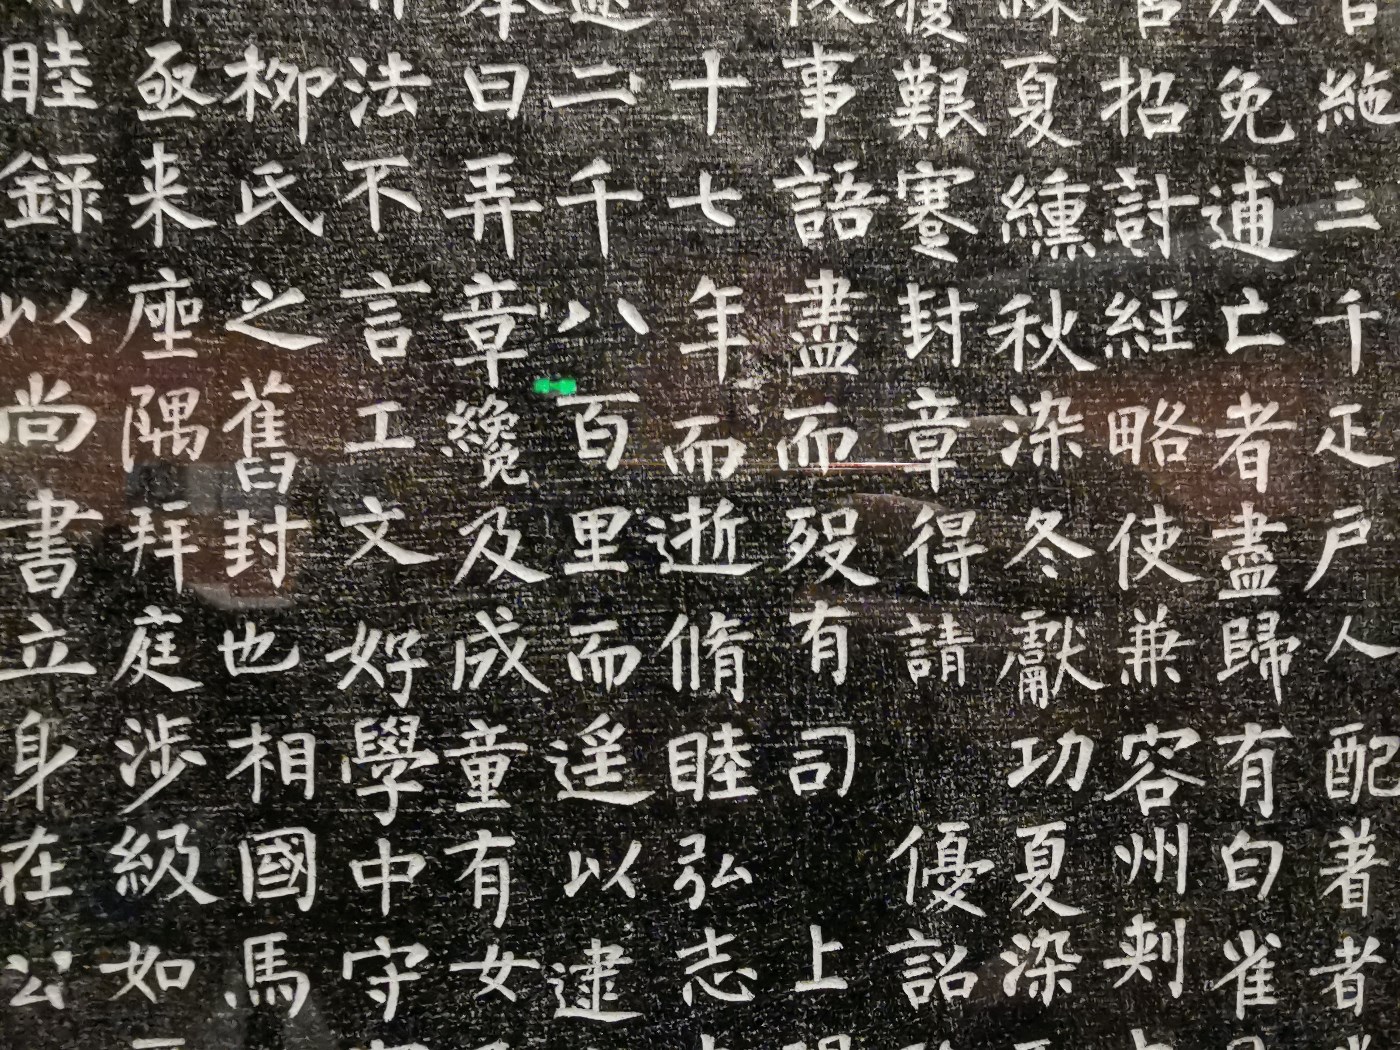 絁三千疋戶人配著者
免逋亡者盡歸有白雀
招討經略使兼容州刺
練夏纁秋染冬獻功夏染
艱蹇封章得請 優詔
事語盡而歿有司 上
十七年而逝脩睦弘志
二千八百里而遥以逮
本曰弄章纔及成童有女
法不言工文好學中守
柳氏之舊封也相國馬
亟来座隅拜庭涉級如
睦録以尚書立身在公